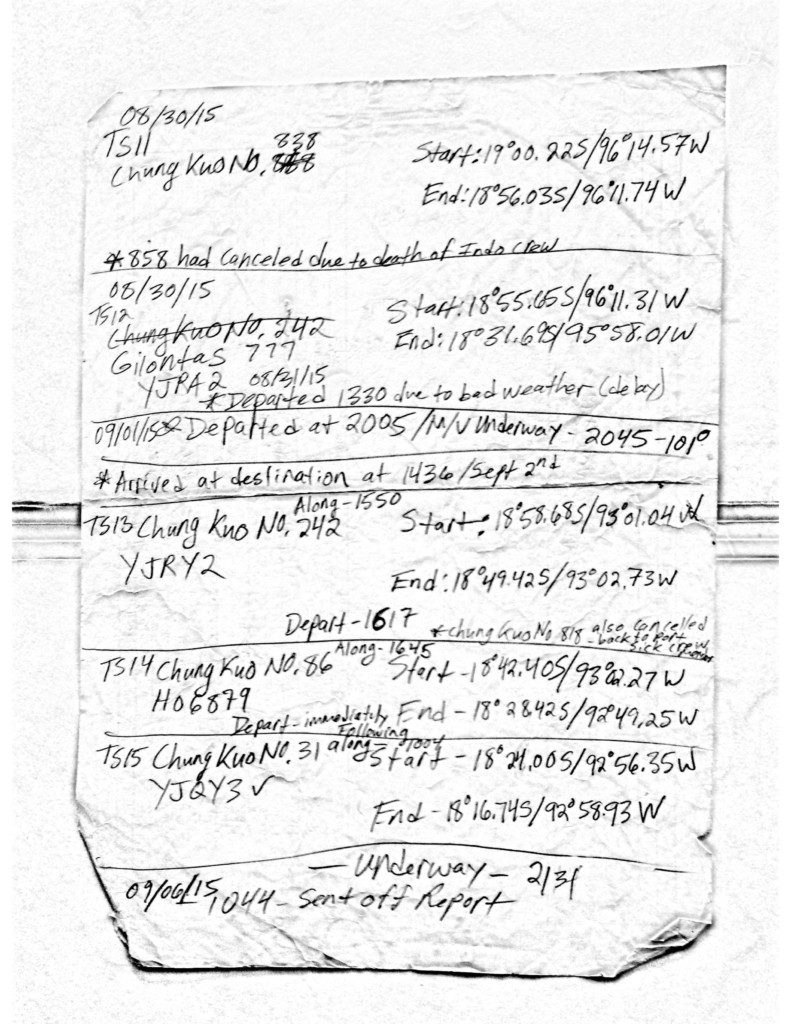 08/30/15
TS11
838
Chung Kuo No.
Start: 19°00.22S/96°14.57W
End: 18°56.03S/96°11.74W
* 858 had canceled due to death of Indo crew
08/30/15
TS12
Chung Kuo No. 242
Gilontas 777
YJRA2 08/31/15
Start: 18°55.65S/96°11.31W
End: 18°31.69S/95°58.01W
* Departed 1330 due to bad weather (delay)
09/01/15 Departed at 2005 /M/V Underway - 2045-101°
* Arrived at destination at 1436/Sept 2nd
Along-1550
TS13 Chung Kuo No. 242
YJRY2
Start: 18°58.68S/93°01.04W
End: 18°49.42S/93°02.73W
Depart-1617
* Chung Kuo No. 818 also cancelled
- back to port
sick crew
Along-1645
TS14 Chung Kuo NO. 86
HO6879
Start - 18°42.40S/93°02.27W
Depart - immediately
Following
End - 18°28.42S/92°49.25W
TS15 Chung Kuo No. 31 along
YJQY3 ✓
Start - 18°21.00S/92°56.35W
End - 18°16.74S/92°58.93W
— Underway — 2131
09/06/15 1044 - Sent off Report